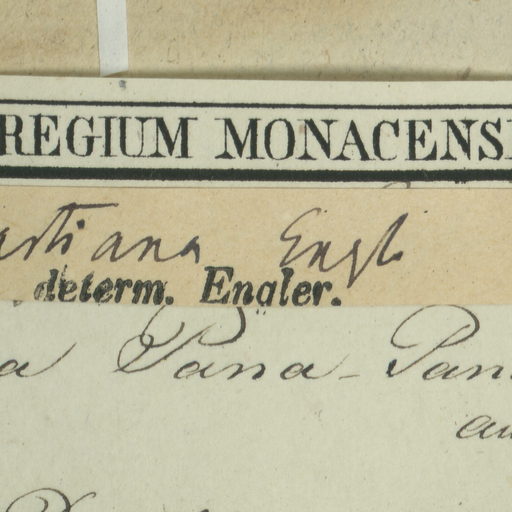 REGIUM MONACENS
artiana Engl
determ. Engler.
a Pana-Pan
au